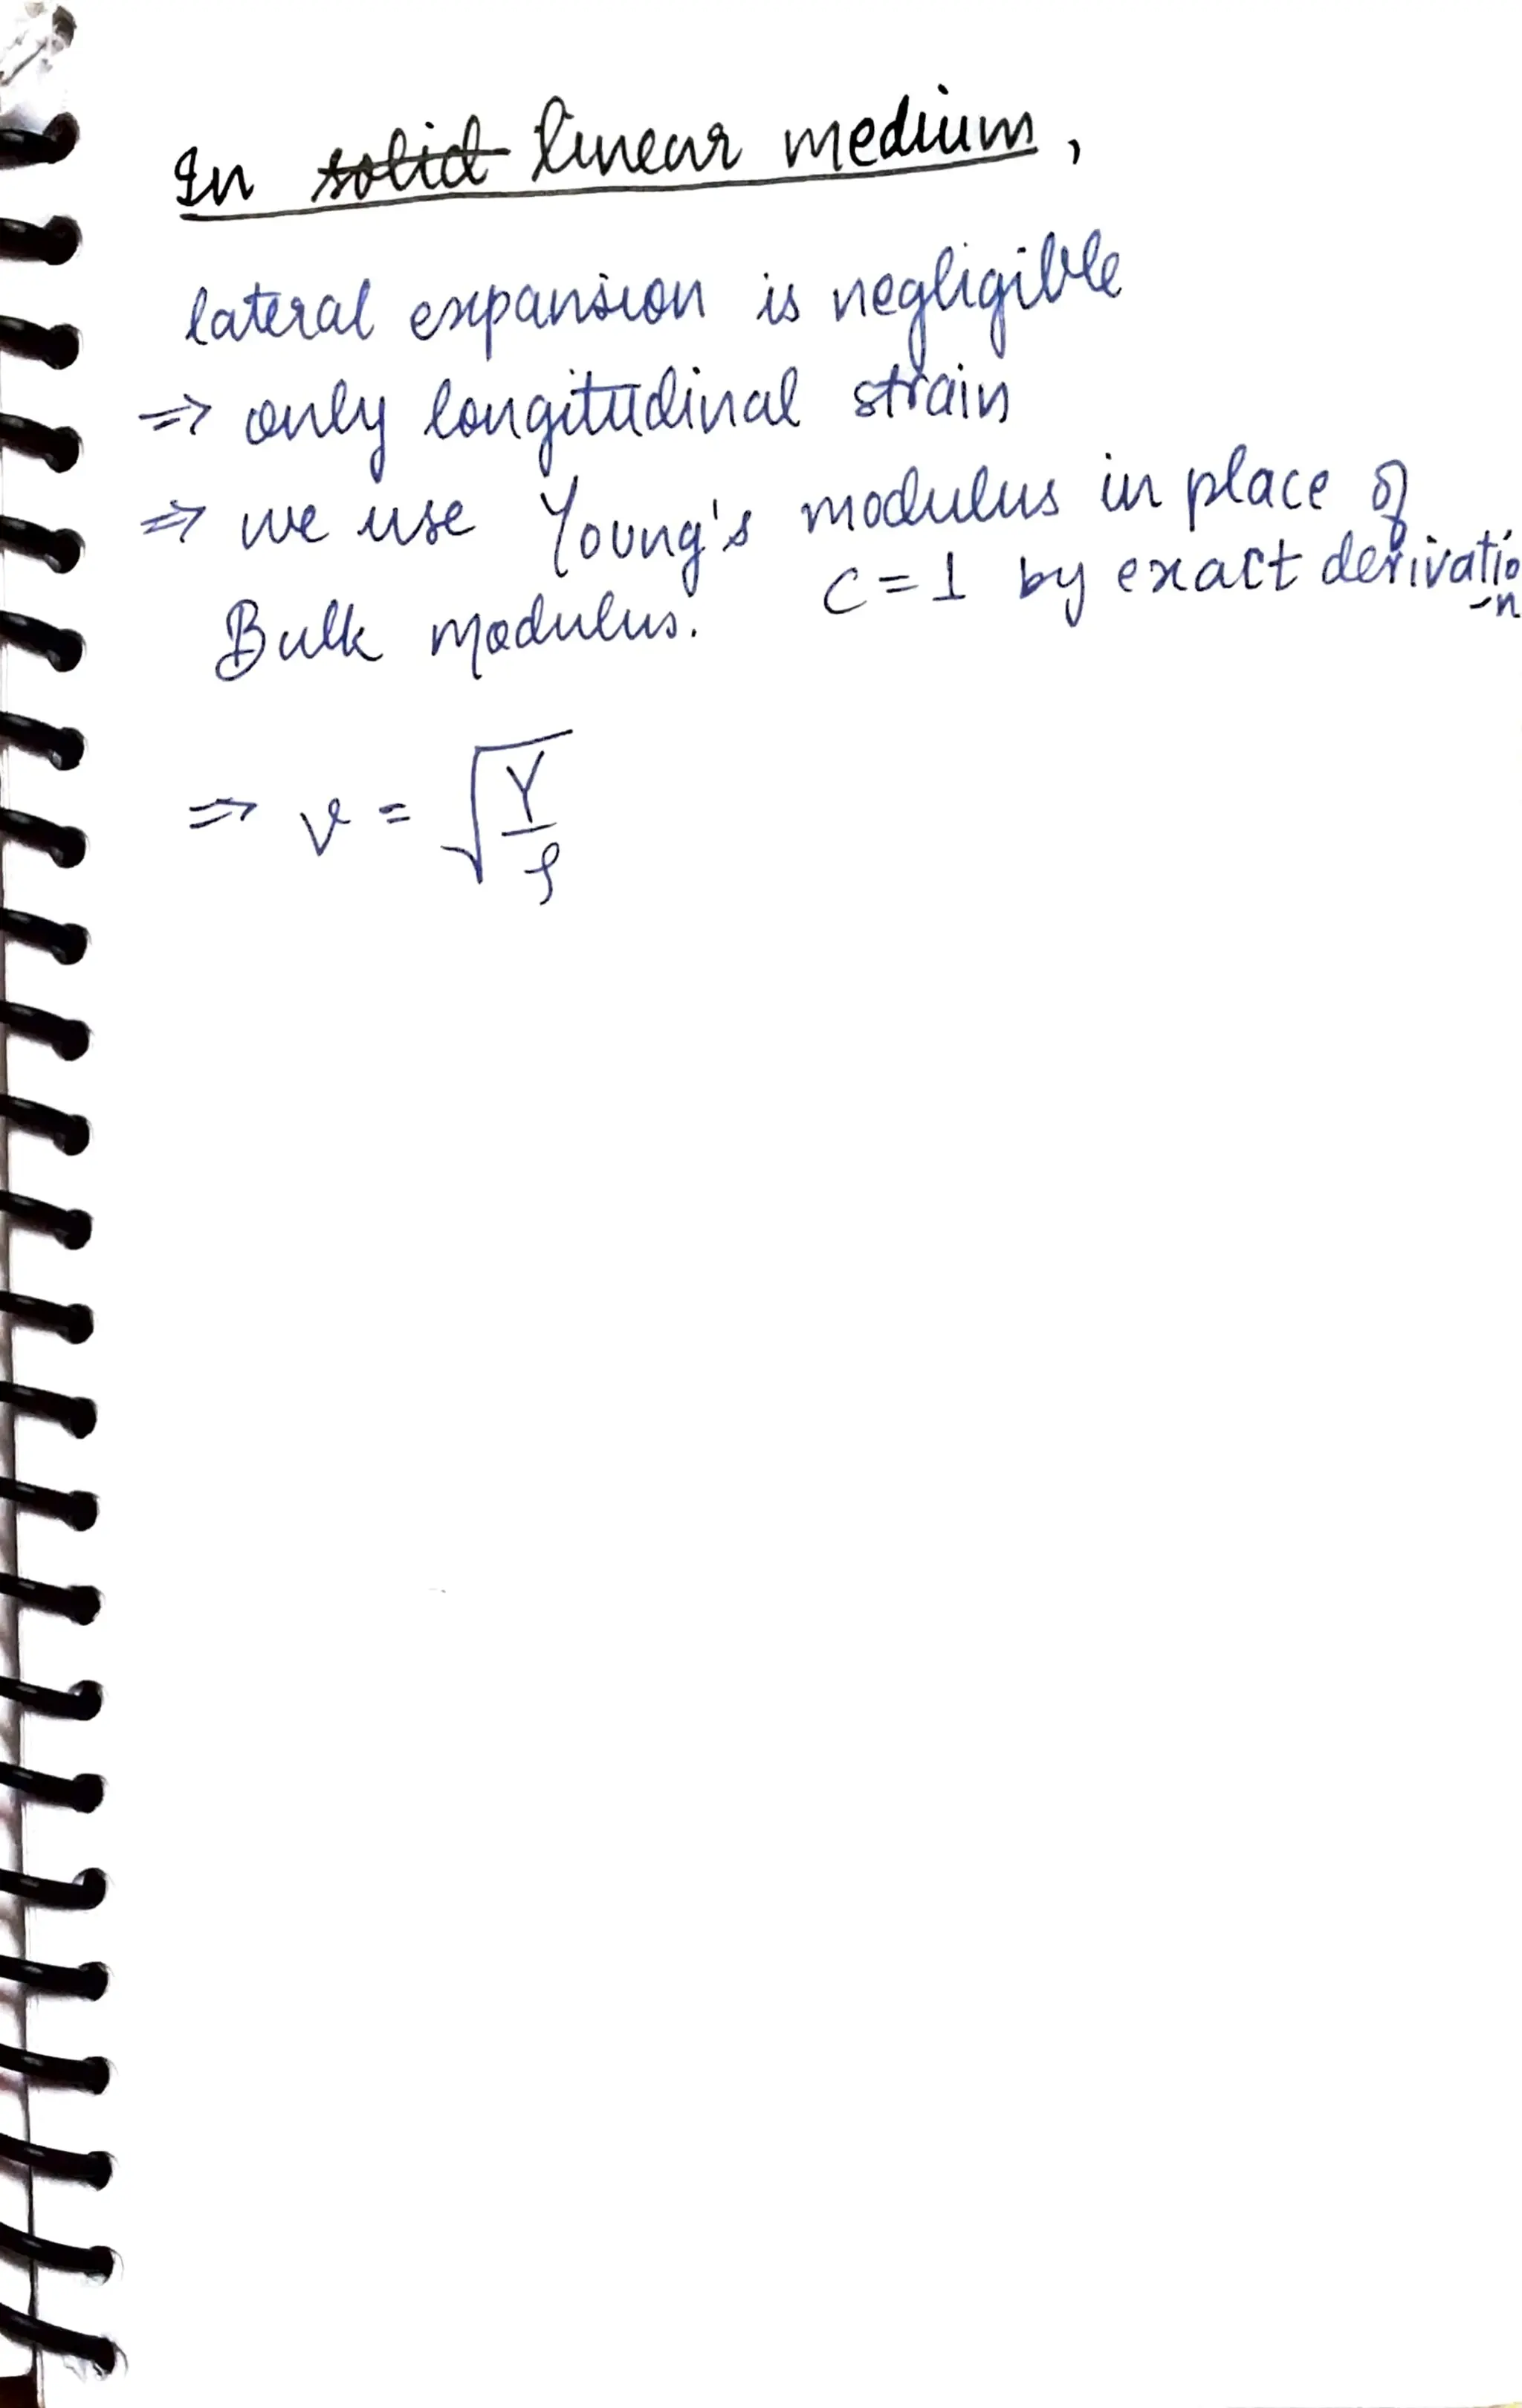 In solid linear medium,
lateral expansion is negligible
⇒ only longitudinal strain
⇒ we use Young's modulus in place of
Bulk modulus. C = 1 by exact derivatio
-n
⇒ v = √(Y/ρ)